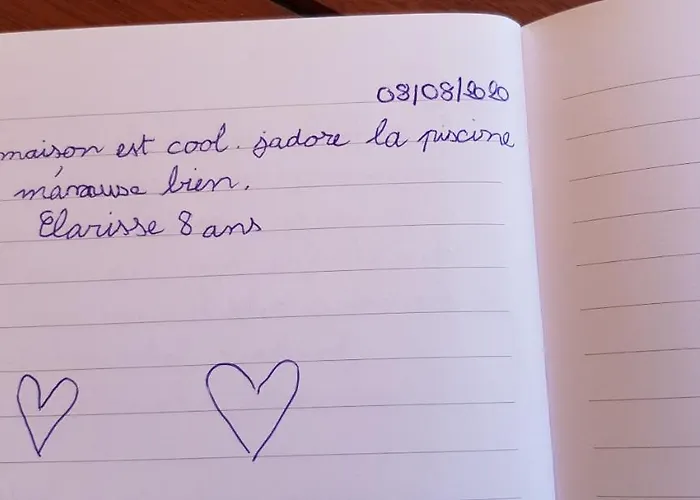 08/08/2020
maison est cool. jadore la piscine
bien.
Clarisse 8 ans